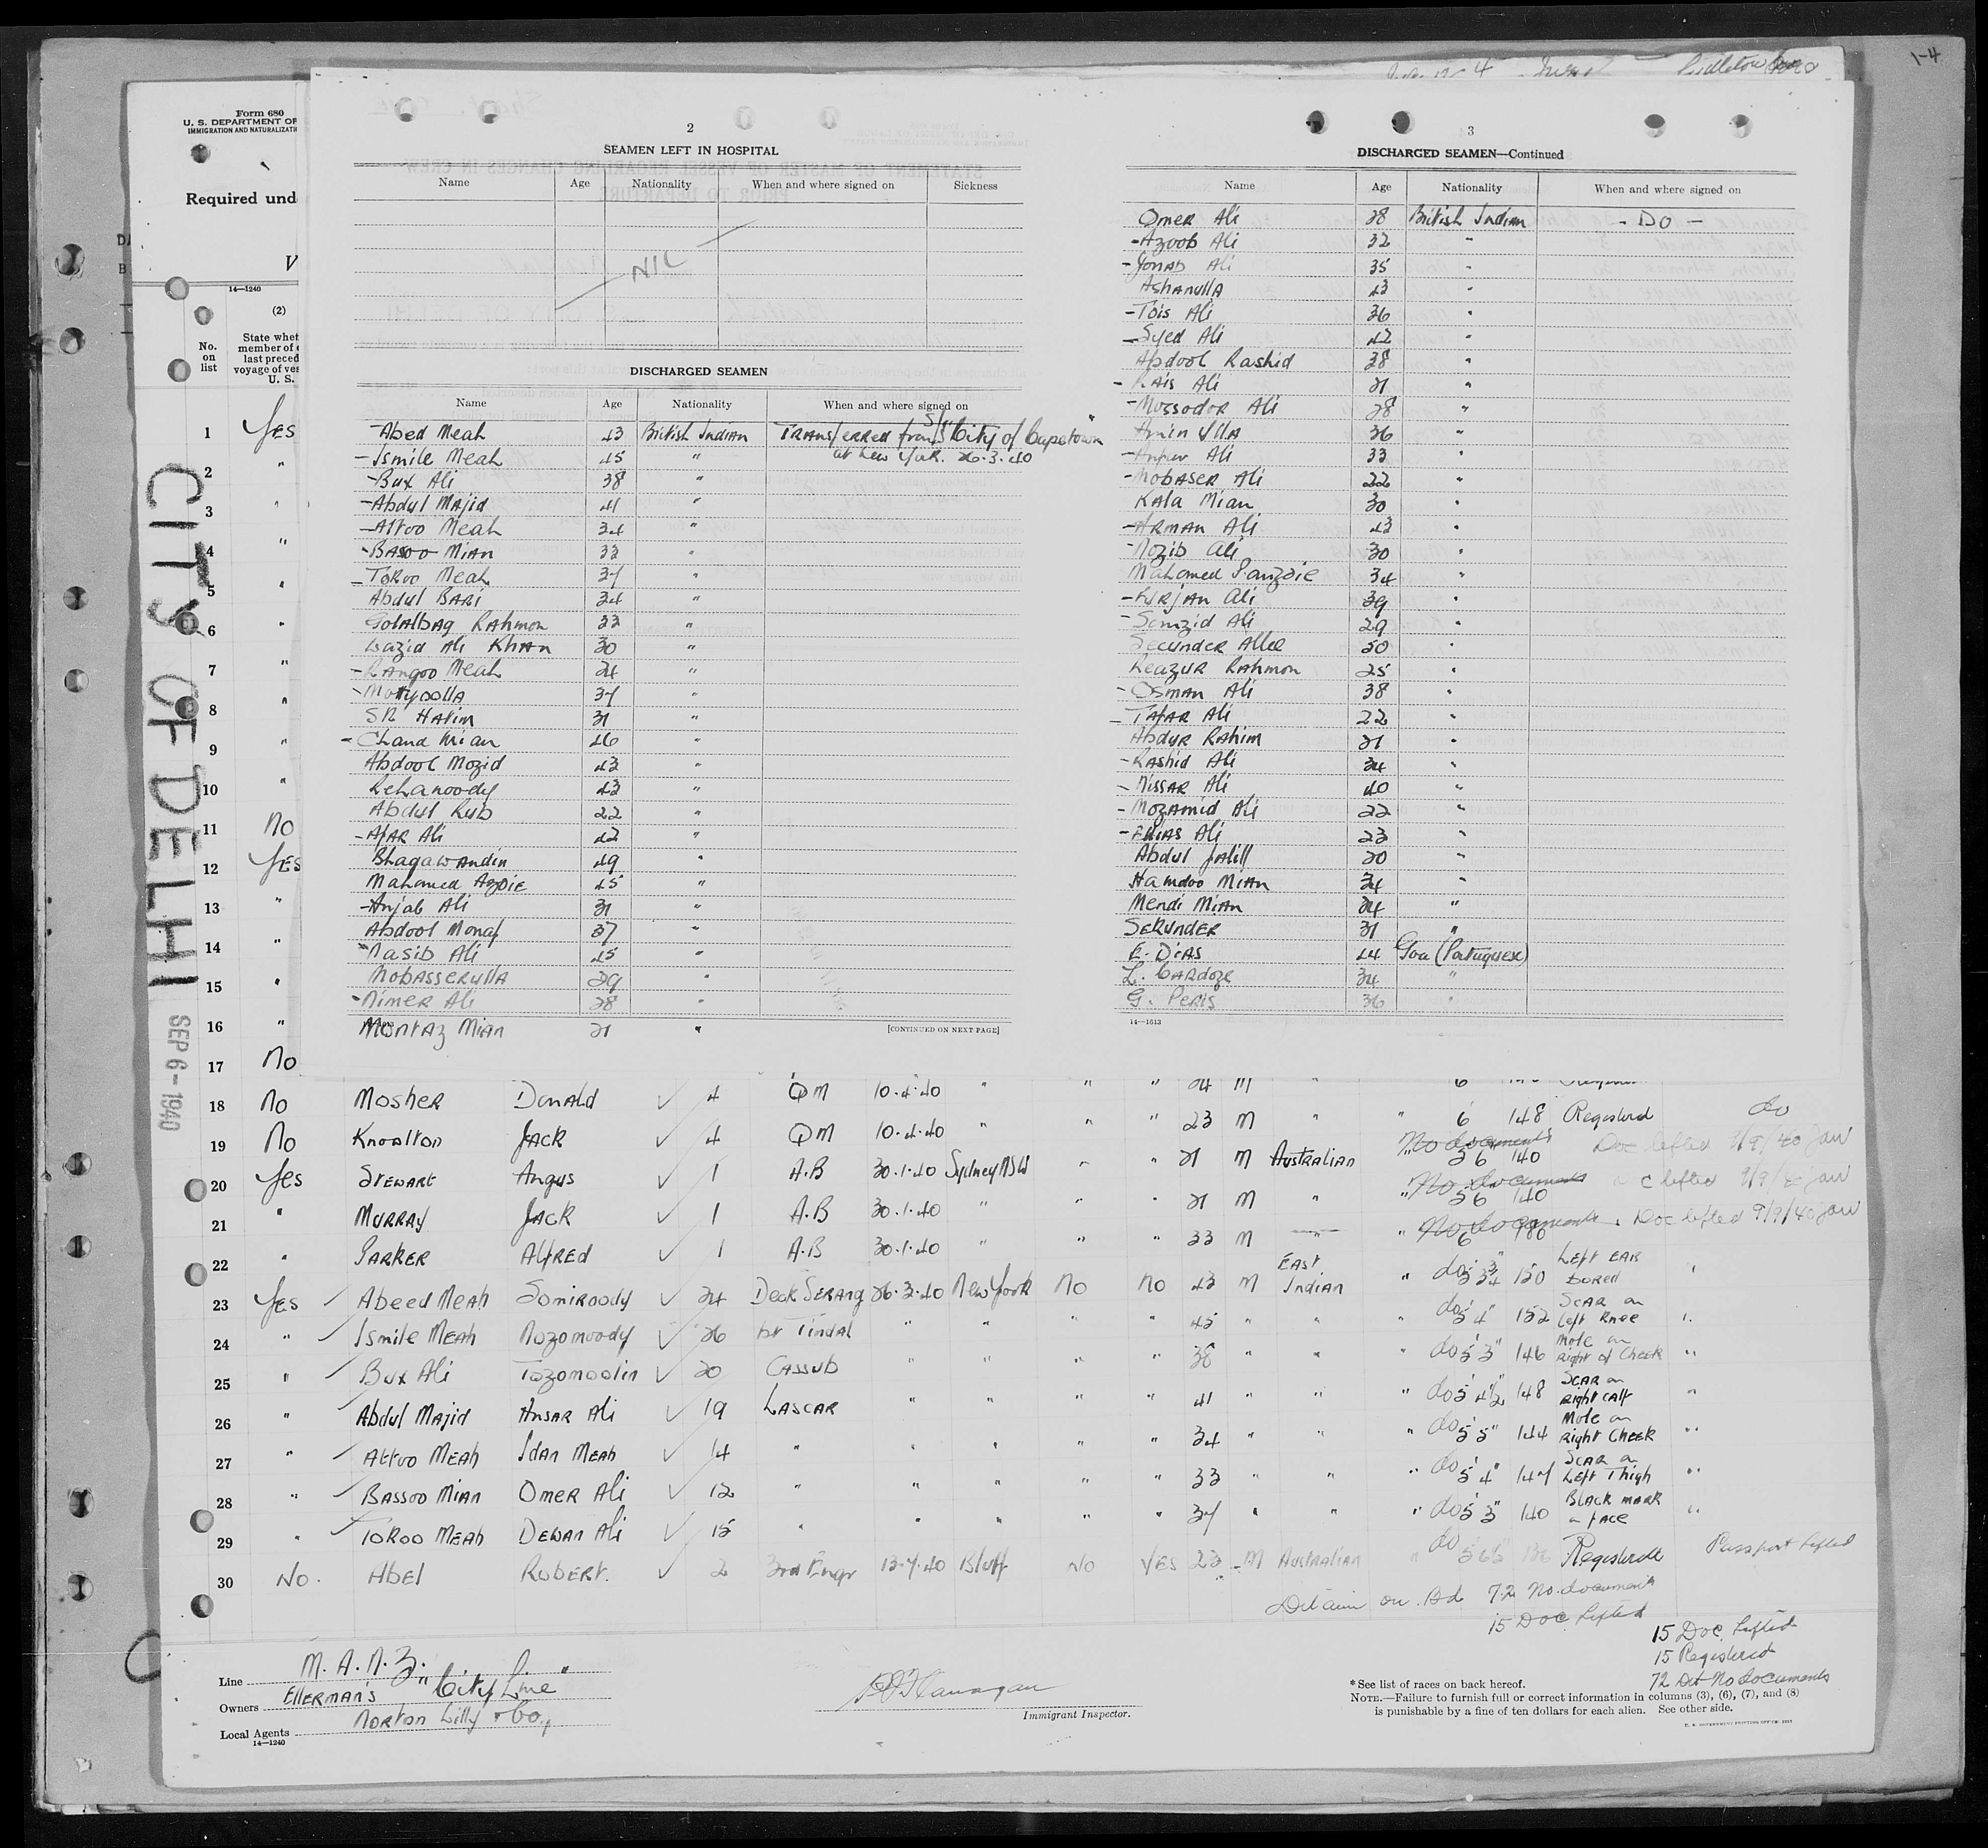 1-4
Form 680
U. S. DEPARTMENT OF
IMMIGRATION AND NATURALIZATI
Required und
V
14—1240
(2)
No. on list
State whet
member of
last preced
voyage of ves
U. S.
CITY OF DELHI
SEP 6-1940
2
SEAMEN LEFT IN HOSPITAL
Name Age Nationality When and where signed on Sickness
NIL
DISCHARGED SEAMEN
Name Age Nationality When and where signed on
-Abed Meah 43 British Indian Transferred from S/S "City of Capetown"
-Ismile Meah 45 " at New York. 26.3.40
-Bux Ali 38 "
-Abdul Majid 41 "
-Attoo Meah 34 "
-Bassoo Mian 33 "
-Toroo Meah 37 "
Abdul Bari 34 "
Golalbag Rahmon 33 "
Wazid Ali Khan 30 "
-Rangoo Meah 24 "
-Motyoolla 37 "
SR Halim 31 "
-Chand Mian 46 "
Abdool Mozid 43 "
Rehanoody 43 "
Abdul Rub 22 "
-Afar Ali 42 "
Bhagawandin 49 "
Mahomed Azdie 45 "
-Anjab Ali 31 "
Abdool Monaf 37 "
-Nasib Ali 45 "
Mobasserulla 29 "
-Nimer Ali 28 "
Montaz Mian 21 "
[CONTINUED ON NEXT PAGE]
3
DISCHARGED SEAMEN—Continued
Name Age Nationality When and where signed on
Omer Ali 28 British Indian - DO -
-Azoob Ali 32 "
-Jonab Ali 35 "
Ashanulla 43 "
-Tois Ali 36 "
-Syed Ali 42 "
Abdool Rashid 38 "
-Rais Ali 21 "
-Mossodor Ali 28 "
Amin Ulla 36 "
Ali 33 "
-Mobaser Ali 22 "
Kala Mian 30 "
-Arman Ali 43 "
-Mozib Ali 30 "
Mahomed 34 "
-Furjan Ali 39 "
-Somzid Ali 29 "
Secunder Allee 50 "
Reazur Rahmon 25 "
-Osman Ali 38 "
-Tafar Ali 22 "
Abdur Rahim 21 "
-Rashid Ali 34 "
-Nissar Ali 40 "
-Mozamid Ali 22 "
-Elias Ali 23 "
Abdul Jalill 20 "
Hamdoo Mian 34 "
Mendi Mian 24 "
Sekunder 31 "
E. Dias 44 Goa (Portuguese)
L. Cardoze 34 "
G. Peris 36 "
14—1613
1 Yes
2 "
3 "
4 "
5 "
6 "
7 "
8 "
9 "
10 "
11 No
12 Yes
13 "
14 "
15 "
16 "
17 No
18 No Mosher Donald ✓ 4 QM 10.4.40 " " " 24 M " 6
19 No Knowlton Jack ✓ 4 QM 10.4.40 " " " 23 M " " 6 148 Registered do
20 Yes Stewart Angus ✓ 1 A.B 30.1.40 Sydney NSW " " 21 M Australian " No documents 5 6 140 Doc lifted 9/9/40 jaw
21 " Murray Jack ✓ 1 A.B 30.1.40 " " " 21 M " " No documents 5 6 140 Doc lifted 9/9/40 jaw
22 " Parker Alfred ✓ 1 A.B 30.1.40 " " " 33 M " " No documents 6 180 Doc lifted 9/9/40 jaw
23 Yes Abeed Meah Somiroody ✓ 24 Deck Serang 26.3.40 New York No No 43 M East Indian " do 150 Left ear bored
24 " Ismile Meah Nozomoody ✓ 26 1st Tindal " " " " 45 " " " do 5' 4" 152 Scar on Left Knee "
25 " Bux Ali Tozomodin ✓ 20 Cassub " " " " 38 " " " do 5' 3" 146 Mole on Right of Cheek "
26 " Abdul Majid Ansar Ali ✓ 19 Lascar " " " " 41 " " " do 5' 4½" 148 Scar on Right Calf "
27 " Attoo Meah Idan Meah ✓ 14 " " " " " 34 " " " do 5' 5" 144 Mole on Right Cheek "
28 " Bassoo Mian Omer Ali ✓ 12 " " " " " 33 " " " do 5' 4" 147 Scar on Left Thigh "
29 " Toroo Meah Dewan Ali ✓ 15 " " " " " 37 " " " do 5' 3" 140 Black mark on face "
30 No. Abel Robert. ✓ 2 3rd Engr 13.7.40 Bluff No Yes 23 M Australian " do 5 6½ 136 Registered Passport lifted
Detain on Bd 72 No documents
15 Doc. lifted
15 Doc. lifted
15 Registered
72 Det No documents
Line M. A. N. Z.
Owners Ellerman's "City Line"
Local Agents Norton Lilly & Co.,
14—1240
Immigrant Inspector.
*See list of races on back hereof.
NOTE.—Failure to furnish full or correct information in columns (3), (6), (7), and (8)
is punishable by a fine of ten dollars for each alien. See other side.
U. S. GOVERNMENT PRINTING OFFICE: 1937